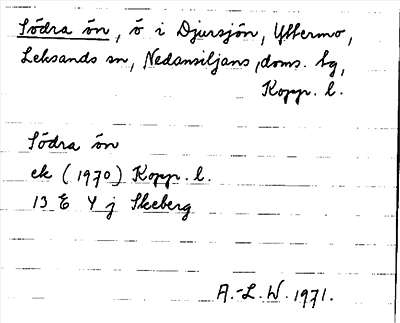 Södra ön, ö i Djursjön, Yttermo,
Leksands sn, Nedansiljans doms. tg,
Kopp. l.
Södra ön
ek (1970) Kopp. l.
13 E 4 j Skeberg
A.-L. W. 1971.